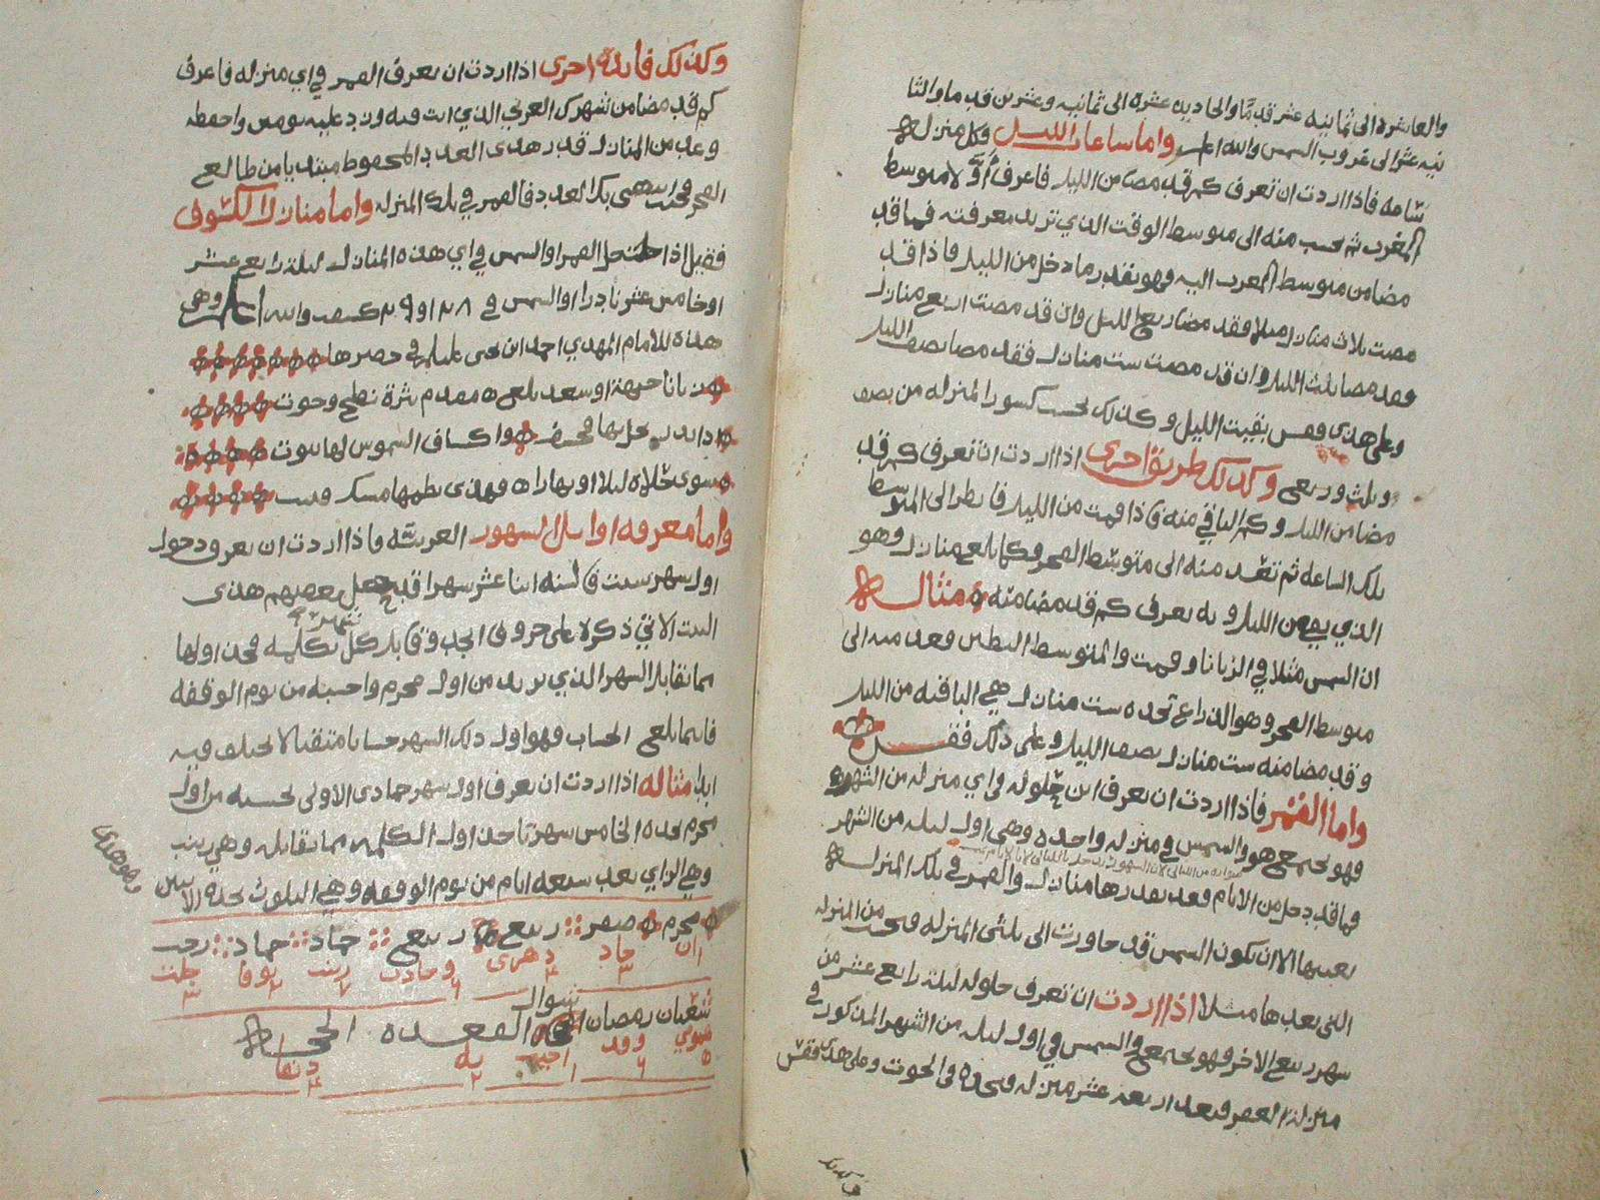 والعاشرة الى ثمانيه عشر قدما والحاديه عشرة الى ثمانيه وعشرين قدما والثا
نيه عشر الى غروب الشمس والله اعلم واما ساعات الليل فكل منزله
ساعه فاذا اردت ان تعرف كم قد مضا من الليل فاعرف اولا متوسط
المغرب ثم تحسب منه الى متوسط الوقت الذي تريد معرفته فما قد
مضا من متوسط المغرب اليه فهو بقدر ما دخل من الليل فاذا قد
مضت ثلاث منازل مثلا فقد مضا ربع الليل وان قد مضت اربع منازل
فقد مضا ثلث الليل وان قد مضت ست منازل فقد مضا نصف الليل
وعلى هذى فقس بقيت الليل وكذلك تحسب كسور المنزله من نصف
وثلث وربع وكذلك طريق اخرى اذا اردت ان تعرف كم قد
مضا من الليل وكم الباقي منه فاذا قمت من الليل فانظر الى المتوسط
تلك الساعه ثم تعد منه الى متوسط الفجر وكما بلع منازل وهو
الذي بقي من الليل وبه يعرف كم قد مضا منه مثاله
ان الشمس مثلا في الزبانا وقمت والمتوسط البطين فعد منه الى
متوسط الفجر وهو الذراع تجده ست منازل هي الباقيه من الليل
وقد مضا منه ست منازل نصف الليل وعلى ذلك فقس
واما القمر فاذا اردت ان تعرف اين حلوله في اي منزله من الشهر
فهو يجتمع هو والشمس في منزله واحده وهي اول ليله من الشهر
فما قد دخل من الايام فعد بقدرها منازل والقمر في تلك المنزله
بعينها الا ان تكون الشمس قد جاوزت الى ثلثي المنزله فتحسب من المنزله
التي بعدها مثلا اذا اردت ان تعرف حلوله ليلة رابع عشر من
شهر ربيع الاخر فهو يجتمع والشمس في اول ليله من الشهر المذكور في
منزلة الغفر فبعد اربعه عشر منزله فتجده في الحوت وعلى هذى فقس
وكذلك
وكذلك فائدة اخرى اذا اردت ان تعرف القمر في اي منزله فاعرف
كم قد مضا من شهرك العربي الذي انت فيه وزد عليه يومين واحفظه
وعد من المنازل قدر هذى العدد المحفوظ مبتديا من طالع
الفجر فحيث ينتهي بك العدد فالقمر في تلك المنزله واما منازل الكسوف
فقيل اذا حل القمر او الشمس في اي هذه المنازل ليلة رابع عشر
او خامس عشر نادرا او الشمس في ٢٨ او ٢٩ كسف والله اعلم وهي
هذه للامام المهدي احمد ابن يحيى عليلم في حصرها
زبانا جبهة او سعد بلع مقدم نثرة نطح وحوت
اذا بدر يحل بها فخسف واكساف الشموس لها ثبوت
واما معرفه اوائل الشهور العربيه فاذا اردت ان تعرف دخول
اول شهر سنت فالسنه اثنا عشر شهرا قد جعل بعضهم هذى
البيت الاتي ذكره على حروف ابجد وقابل كل شهر بكلمه فخذ اولها
مما تقابل الشهر الذي تريد من اول محرم واحسبه من يوم الوقفه
فاينما بلع الحساب فهو اول ذلك الشهر حسابا متقنا لا يختلف فيه
ابدا مثاله اذا اردت ان تعرف اول شهر جمادى الاولى تحسبه من اول
محرم تجده الخامس شهر تاخذ اول الكلمه مما تقابله وهي زينب
وهي الزاي بعد سبعه ايام من يوم الوقفه وهي الثلوث تجده الاثنين
وهو هذى
محرم صفر ربيع ربيع جماد جماد رجب
ان جاد دهرى وحادث زينب بوفا جلت
١ ٣ ٤ ٦ ٧ ٢ ٣
شعبان رمضان شوال القعده الحجه
هوي وقد به دنفا
٥ ٦ ١ ٢ ٤